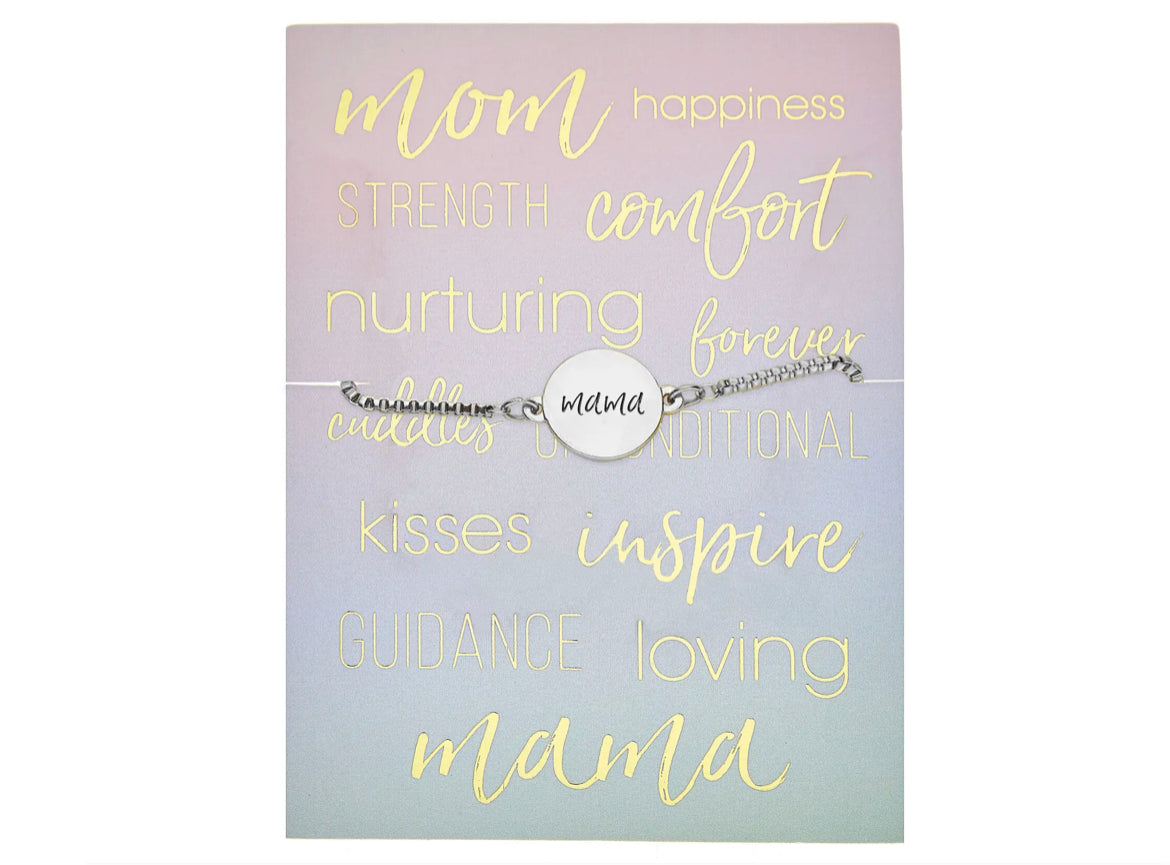 mom happiness
STRENGTH comfort
nurturing
forever
mama
cuddles UNCONDITIONAL
kisses inspire
GUIDANCE loving
mama